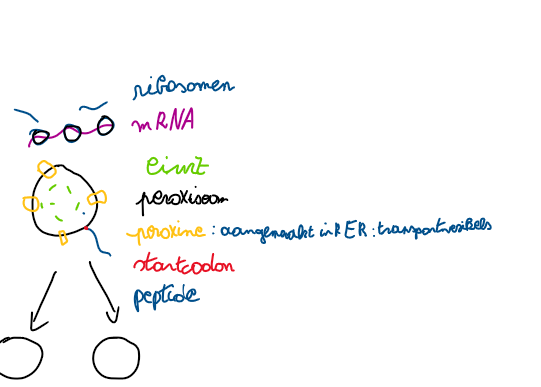 ribosomen
mRNA
eiwit
peroxisoom
peroxine : aangemaakt in RER : transportvesikels
startcodon
peptide